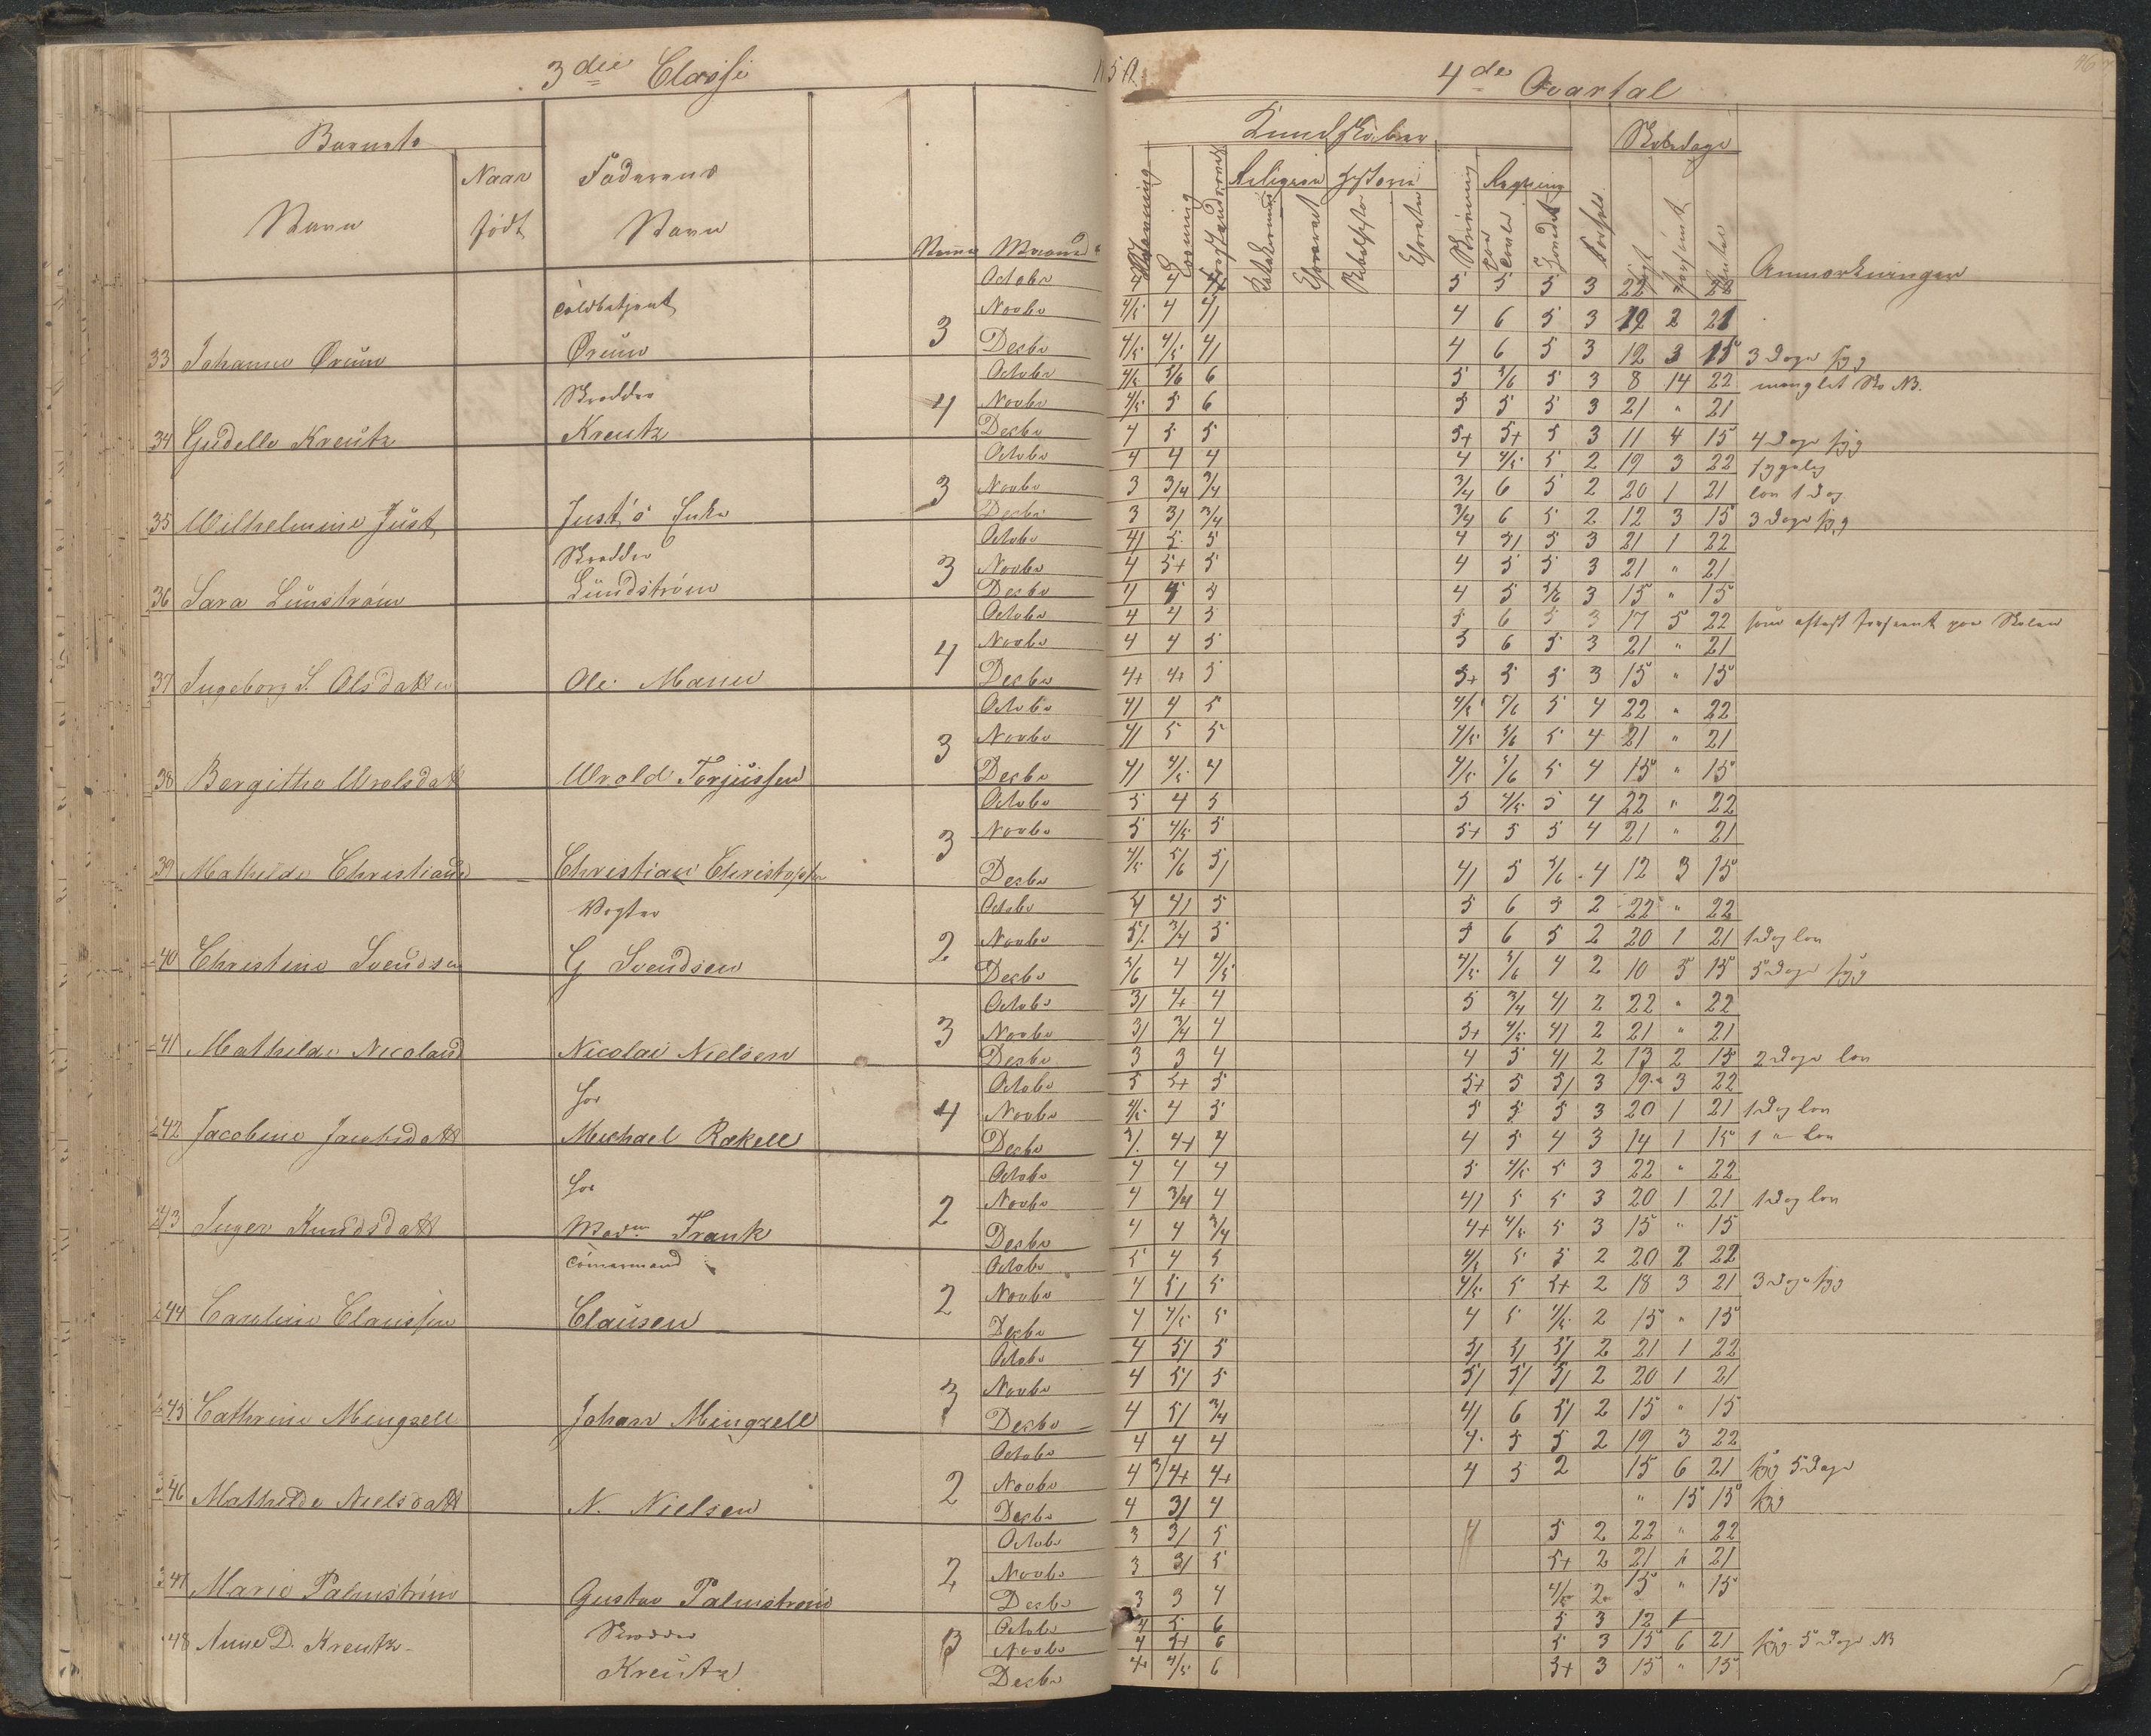 3die Classe
4de Qvartal
Barnets
Navn
Naar
født
Faderens
Navn
Maaned
Kundskaber
Religion
Skrivning
Regning
Skoledage
Anmærkninger
33 Johanne Ørum
Toldbetjent
Ørum
3
Octobr 22 22
Novbr 4/5 4 4/ 4 6 5 3 19 2 21
Decbr 4/5 4/5 4/ 4 6 5 3 12 3 15 3 Dage syg
34 Gudelle Kreutz
Skrædder
Kreutz
4
Octobr 4/5 5/6 6 5 5/6 5 3 8 14 22 manglet Sko NB.
Novbr 4/5 5 6 5 5 5 3 21 " 21
Decbr 4 5 5 5+ 5+ 5 3 11 4 15 4 Dage syg
35 Wilhelmine Just
Just's Enke
3
Octobr 4 4 4 4 4/5 5 2 19 3 22 sygelig
Novbr 3 3/4 3/4 3/4 6 5 2 20 1 21 lov 1 Dag
Decbr 3 3/ 3/4 3/4 6 5 2 12 3 15 3 Dage syg
36 Sara Lunström
Skrædder
Lündström
3
Octobr 4/ 5 5 4 5/ 5 3 21 1 22
Novbr 4 5+ 5 4 5 5 3 21 " 21
Decbr 4 5 5 4 5 5/6 3 15 " 15
37 Ingeborg S. Olsdatter
Ole
4
Octobr 4 4 5 5 6 5 3 17 5 22
Novbr 4 4 5 5 6 5 3 21 " 21
Decbr 4+ 4+ 5 5+ 5 5 3 15 " 15
38 Bergithe Wroldsdatt
Wrold Torjussen
3
Octobr 4/ 4 5 4/5 5/6 5 4 22 " 22
Novbr 4/ 5 5 4/5 5/6 5 4 21 " 21
Decbr 4/ 4/5 4 4/5 5/6 5 4 15 " 15
39 Mathilde Christiansd
Christian Christophr
3
Octobr 5 4 5 5 4/5 5 4 22 " 22
Novbr 5 4/5 5 5+ 5 5 4 21 " 21
Decbr 4/5 5/6 5/ 4/ 5 5/6 4 12 3 15
40 Christine Svendsen
Vogter
G Svendsen
2
Octobr 4 4/ 5 5 6 5 2 22 " 22
Novbr 5/ 3/4 5 5 6 5 2 20 1 21 1 Dag lov
Decbr 5/6 4 4/5 4/5 5/6 4 2 10 5 15 5 Dage syg
41 Mathilde Nicolaid
Nicolai Nielsen
3
Octobr 3/ 4+ 4 5 3/4 4/ 2 22 " 22
Novbr 3/ 3/4 4 5+ 4/5 4/ 2 21 " 21
Decbr 3 3 4 4 5 4/ 2 13 2 15 2 Dage lov
42 Jacobine Jacobsdatt
hos
Michael Rækell
4
Octobr 5 5+ 5 5+ 5 5/ 3 19 3 22
Novbr 4/5 4 5 5 5 5 3 20 1 21 1 Dag lov
Decbr 3/ 4+ 4 4 5 4 3 14 1 15 1 " lov
43 Inger Knudsdatt
hos
Mad. Frank
2
Octobr 4 4 4 5 4/5 5 3 22 " 22
Novbr 4 3/4 4 4/ 5 5 3 20 1 21 1 Dag lov
Decbr 4 4 3/4 4+ 4/5 5 3 15 " 15
44 Caroline Claussen
Clausen
2
Octobr 5 4 5 4/5 5 5 2 20 2 22
Novbr 4 5/ 5 4/5 5 5+ 2 18 3 21 3 Dage syg
Decbr 4 4/5 5 4 5 4/5 2 15 " 15
45 Cathrine Mengzell
Johan Mingzell
3
Octobr 4 5/ 5 5/ 5/ 5/ 2 21 1 22
Novbr 4 5/ 5 5/ 5/ 5/ 2 20 1 21
Decbr 4 5/ 3/4 4/ 6 5/ 2 15 " 15
46 Mathilde Nielsdatt
N. Nielsen
2
Octobr 4 4 4 4 5 5 2 19 3 22
Novbr 4 3/4+ 4+ 4 5 2 15 6 21 syg 5 Dage
Decbr 4 3/ 4 " 15 15 syg
47 Marie Palmström
Gustav Palmström
2
Octobr 3 3/ 5 4 5 2 22 " 22
Novbr 3 3/ 5 5+ 2 21 " 21
Decbr 3 3 4 4/5 2 15 " 15
48 Anne D. Kreutz
Skrædder
Kreutz
3
Octobr 4 5 6 5 3 12
Novbr 4 5+ 6 5 3 15 6 21 syg 5 Dage NB
Decbr 4+ 4/5 6 5+ 3 15 " 15